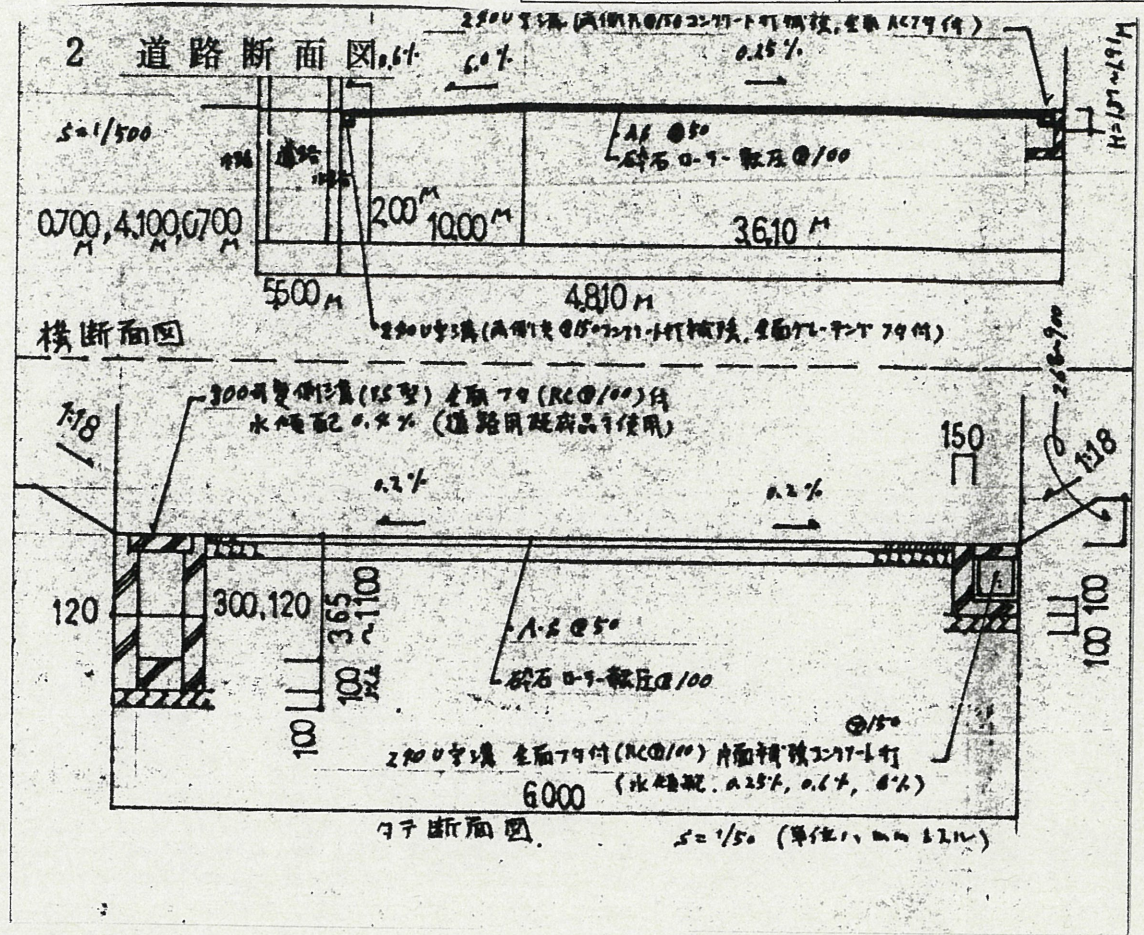 240U字溝(両側 @150コンクリート打補強、全面 フタ付)
2 道路断面図
0.6%
6.0%
0.25%
S=1/500
水路
道路
水路
As @50
砕石ローラー転圧@100
0.700, 4.100, 0.700
M M M
2.00 M
10.00 M
36.10 M
5.500 M
48.10 M
横断面図
240U字溝(両側 @150コンクリート打補強、全面グレーチング フタ付)
300 型側溝(PS型)全面フタ(RC@100)付
水勾配 0.4% (道路用既成品ヲ使用)
1:1.8
0.2%
0.2%
150
268~900
1:1.8
120
300, 120
365
~1100
100
100
100
100
As @50
砕石ローラー転圧@100
@150
240U字溝 全面フタ付(RC@100) 片面補強コンクリート打
(水勾配 0.25%, 0.6%, 6%)
6.000
タテ断面図
S=1/50 (単位ハ mm トスル)